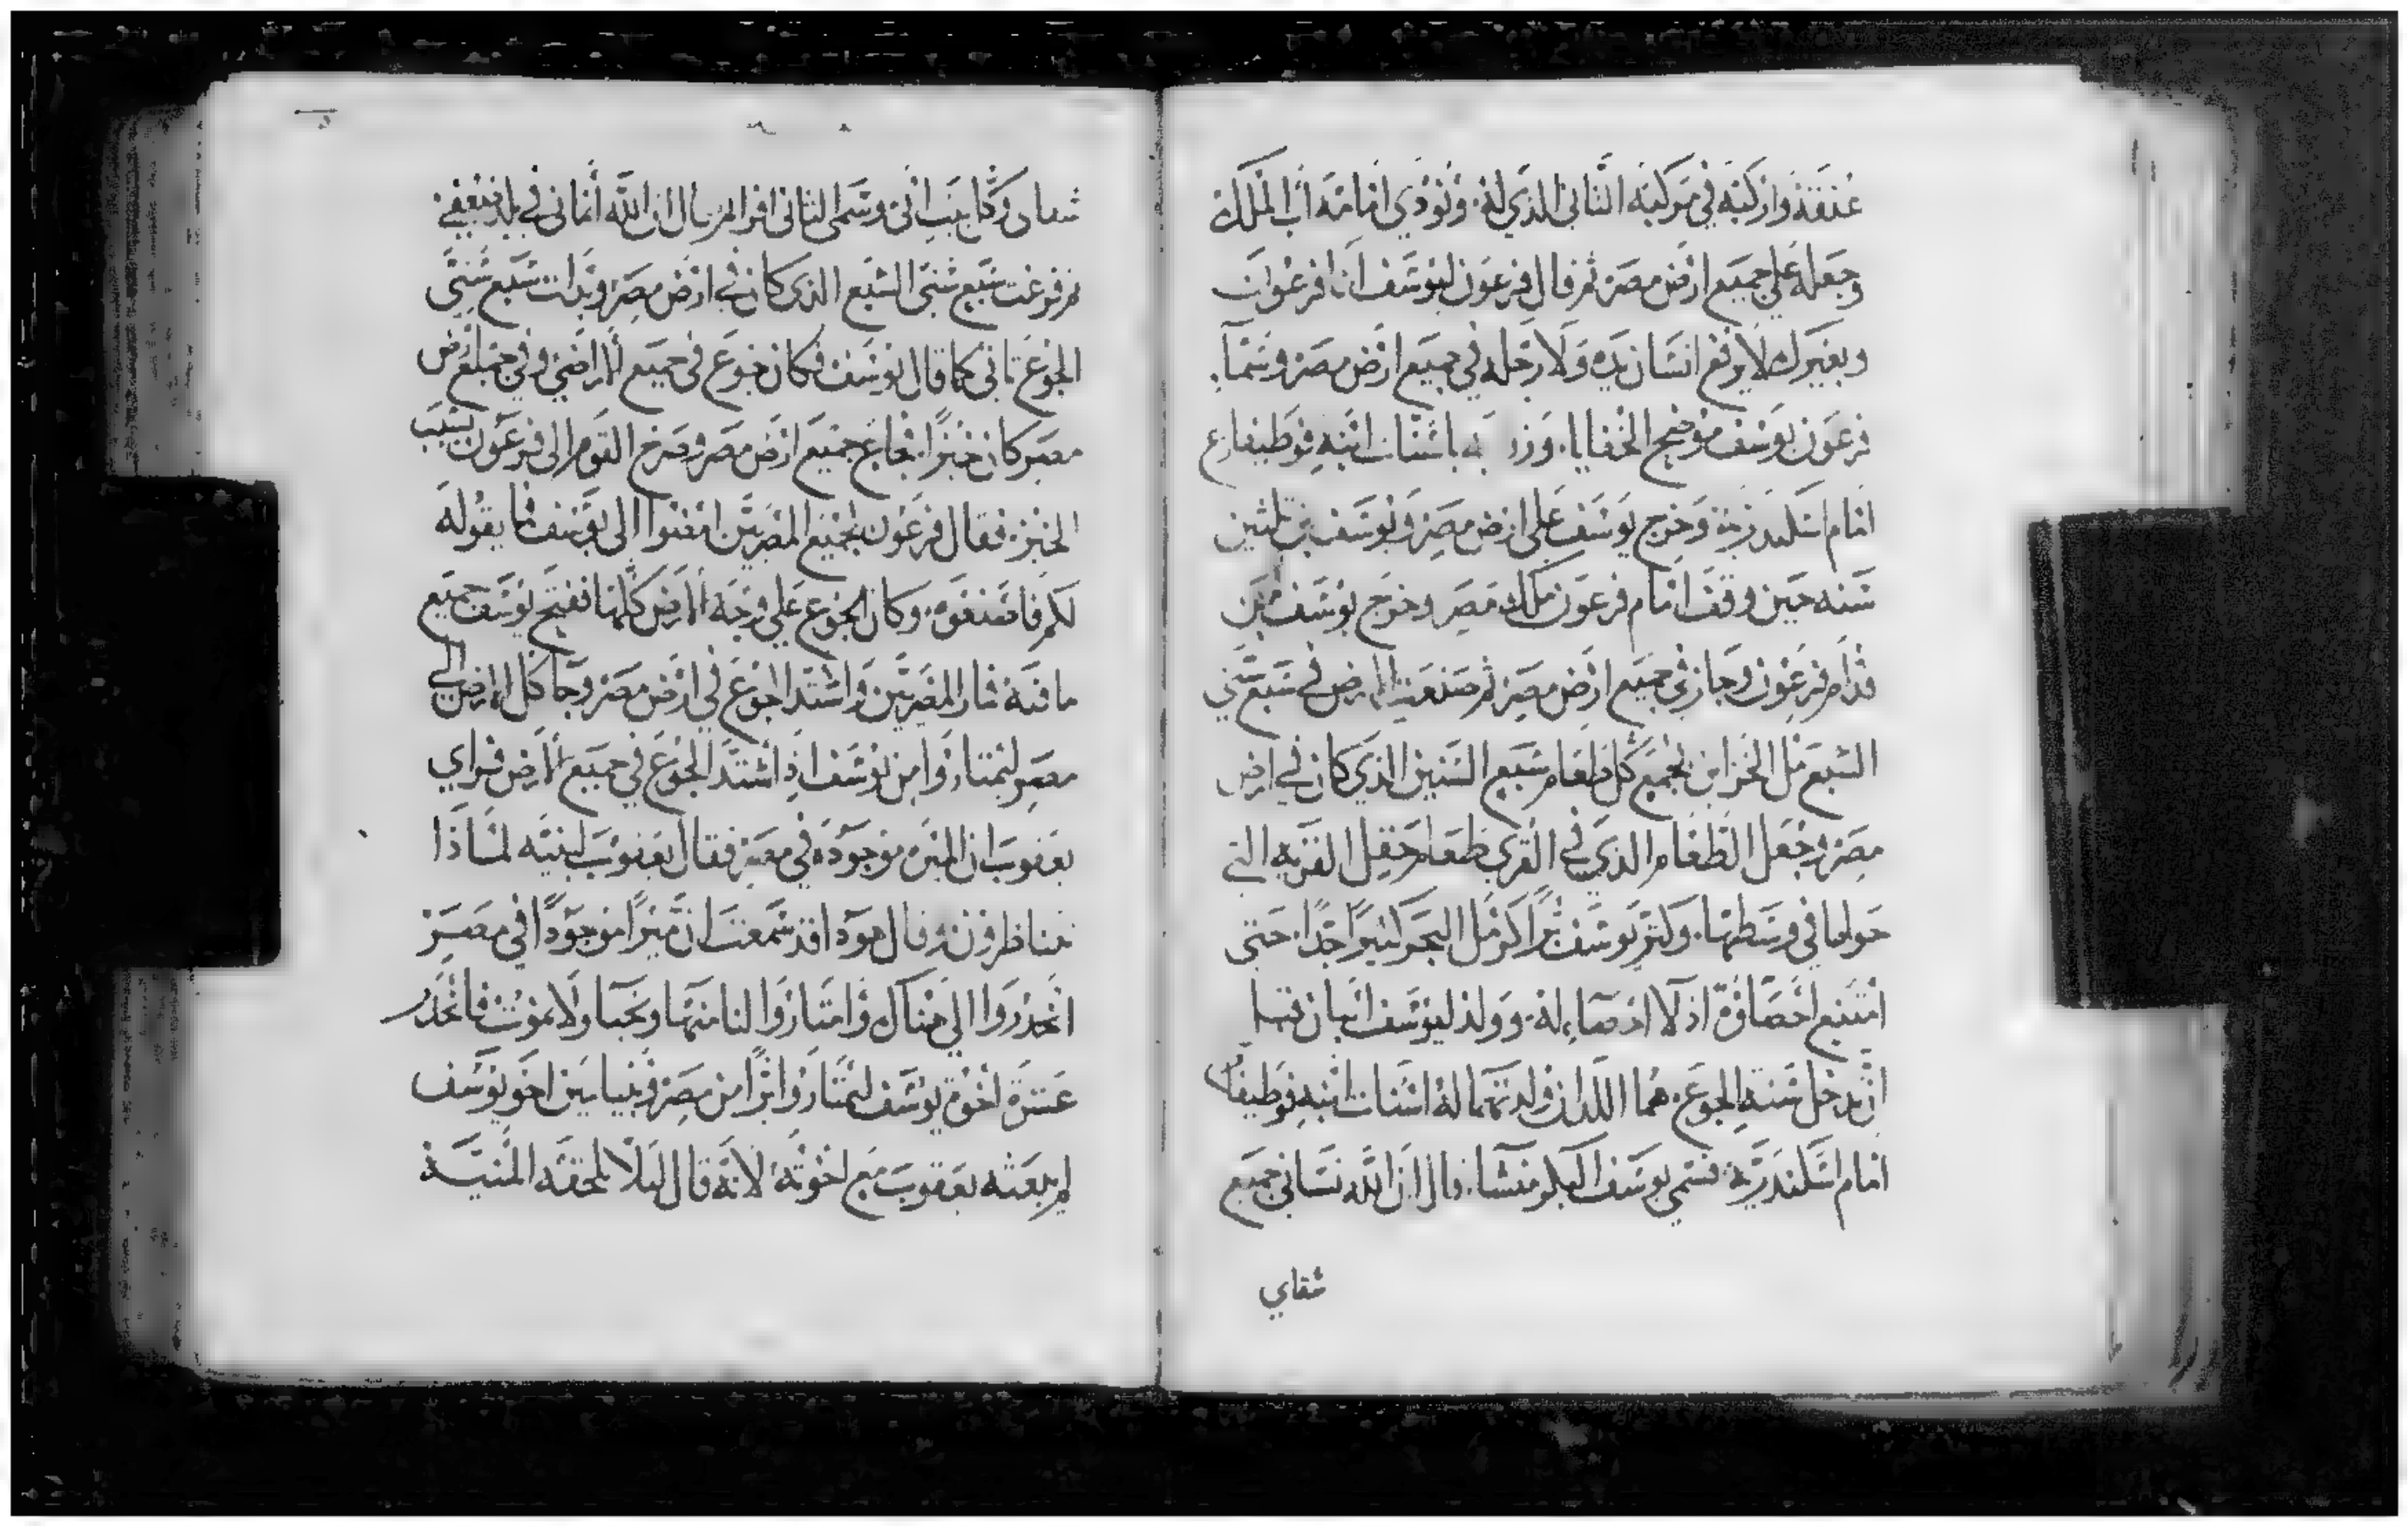 عنقه واركبه في مركبه الثاني الذي له. ونودي امامه اب الملك
وجعله علي جميع ارض مصر ثم قال فرعون ليوسف انا فرعون
وبغيرك لا يرفع انسان يده ولا رجله في جميع ارض مصر وسما
فرعون يوسف موضح الخفايا. باسنات ابنه فوطيفارع
امام اسكندرية وخرج يوسف علي ارض مصر ويوسف بن ثلثين
سنه حين وقف امام فرعون ملك مصر وخرج يوسف من
قدام فرعون وجاز في جميع ارض مصر ثم صنعت الارض في سبع سني
الشبع مل الخزاين فجمع كل طعام سبع السنين الذي كان في ارض
مصر وجعل الطعام الذي في القري طعام حقل القريه التي
حولها في وسطها. وكثر يوسف برا كرمل البحر كثيرا جدا. حتي
امتنع احصاوه اذ لا احصاء له. وولد ليوسف ابنان قبل
ان يدخل سنة الجوع. هما اللذان ولدتهما له اسنات ابنه فوطيفارع
امام اسكندرية. فسمي يوسف البكر منشا. قال ان الله نساني جميع
شقاي
شقاي وكل بيت ابي. وسمي الثاني افرام قال ان الله أنماني في بلد ضعفي.
ثم فرغت سبع سني الشبع الذي كان في ارض مصر وبدات سبع سني
الجوع تاتي كما قال يوسف فكان جوع في جميع الاراضي وفي جميع ارض
مصر كان خبزا. فجاع جميع ارض مصر وصرخ القوم الي فرعون بسبب
الخبز. فقال فرعون لجميع المصريين امضوا الي يوسف فما يقوله
لكم فاصنعوه. وكان الجوع علي وجه الارض كلها ففتح يوسف جميع
ما فيه فمار المصريين واشتد الجوع في ارض مصر وجا كل الارض الي
مصر ليمتاروا من يوسف اذ اشتد الجوع في جميع الارض فراي
يعقوب ان الميره موجودة في مصر فقال يعقوب لبنيه لماذا
قال هوذا قد سمعت ان ميرا موجودا في مصر
انحدروا الي هناك وامتاروا لنا منها ونحيا ولا نموت فانحدر
عشرة اخوة يوسف ليمتاروا برا من مصر وبنيامين اخو يوسف
لم يبعثه يعقوب مع اخوته لانه قال ليلا تلحقه المنية